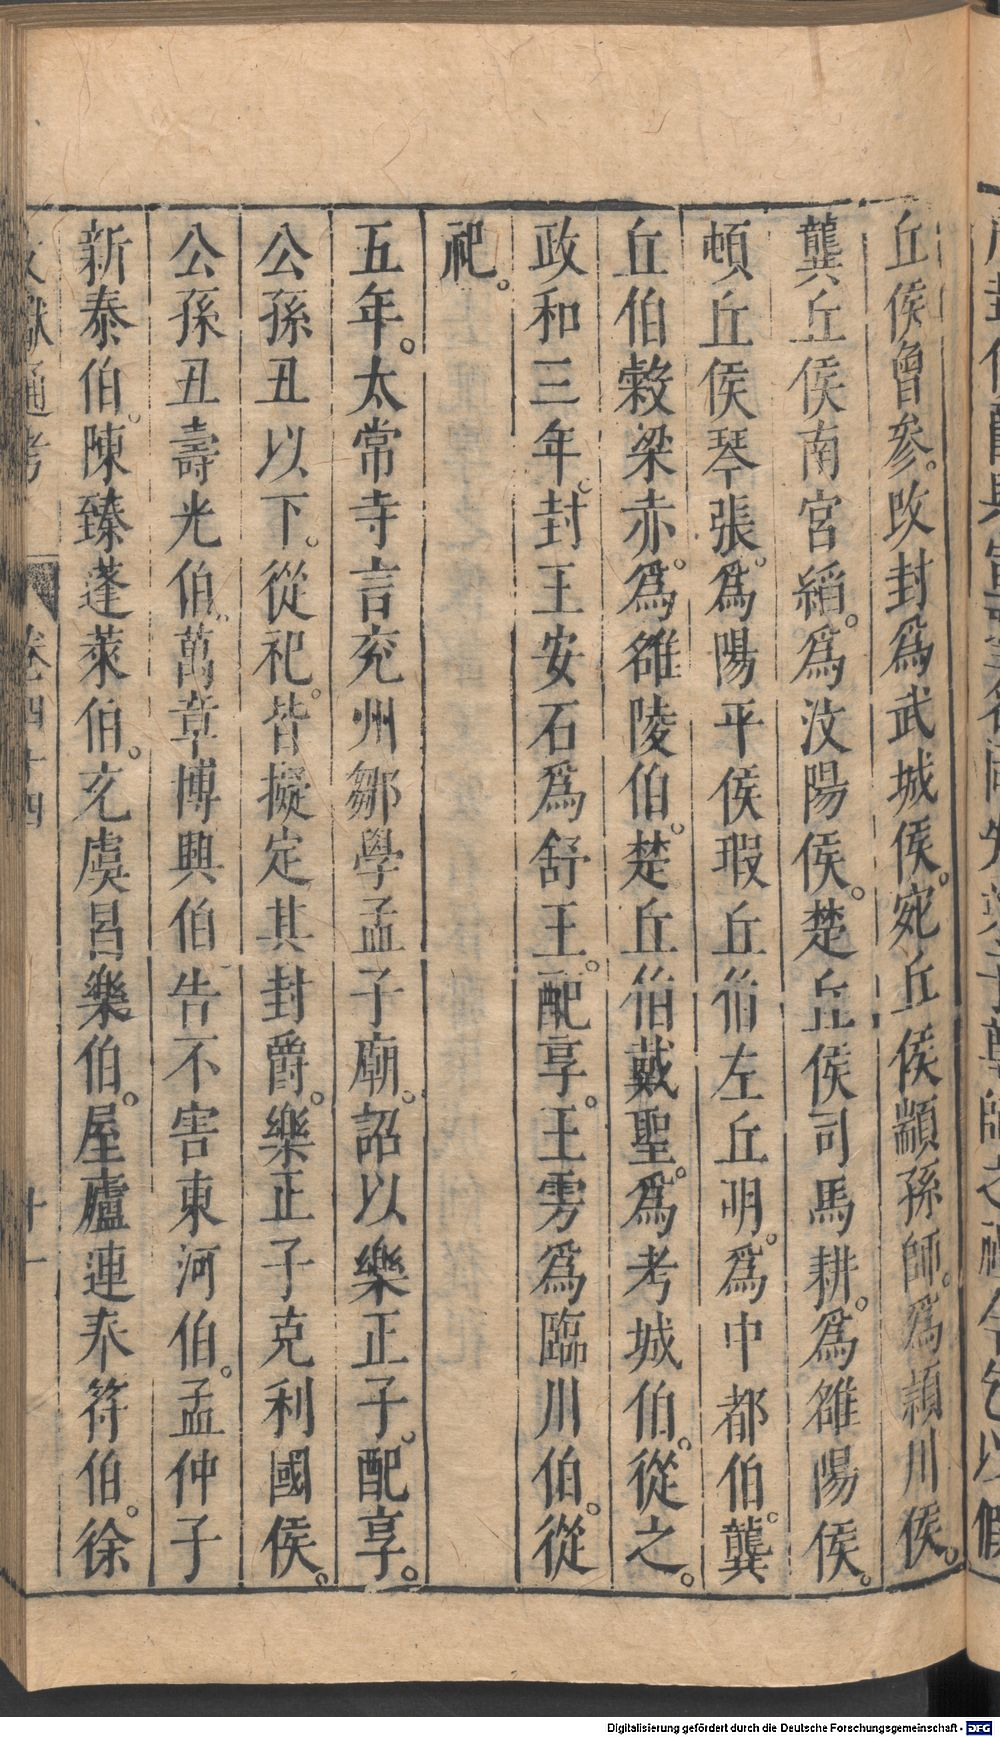 丘侯曾參。改封爲武城侯。宛丘侯顓孫師。爲潁川侯。
龔丘侯南宮縚。爲汶陽侯。楚丘侯司馬耕。爲雒陽侯。
頓丘侯琴張。爲陽平侯瑕丘伯左丘明。爲中都伯。龔
丘伯穀梁赤。爲雒陵伯。楚丘伯戴聖。爲考城伯。從之。
政和三年。封王安石爲舒王。配享。王雱爲臨川伯。從
祀。
五年。太常寺言兖州鄒學孟子廟。詔以樂正子。配享。
公孫丑以下。從祀。皆擬定其封爵。樂正子克利國侯。
公孫丑壽光伯。萬章博興伯告不害東河伯。孟仲子
新泰伯。陳臻蓬萊伯。充虞昌樂伯。屋廬連奉符伯。徐
文獻通考 卷四十四 十一
Digitalisierung gefördert durch die Deutsche Forschungsgemeinschaft - DFG